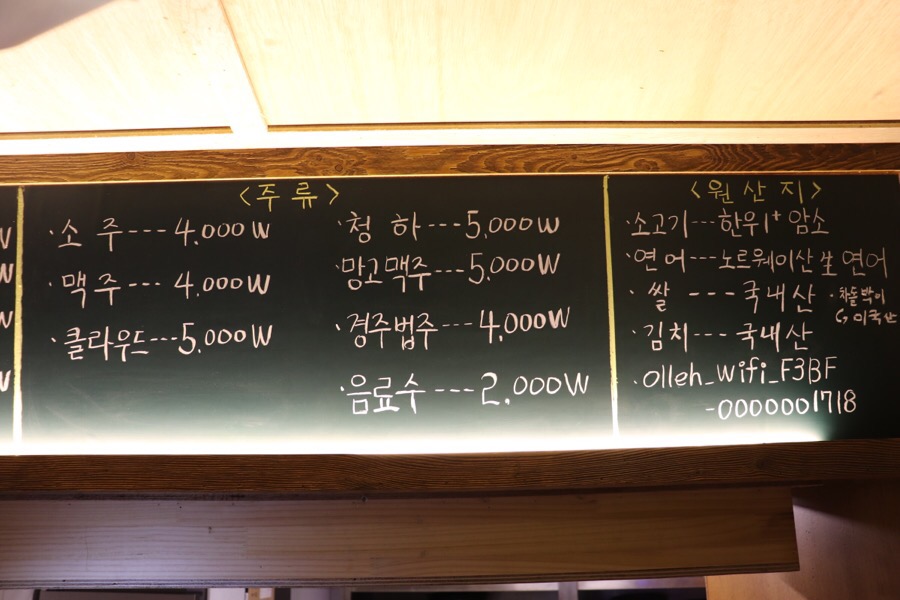 <주류>
·소 주---4.000W
·맥 주---4.000W
·클라우드---5.000W
·청 하---5.000W
·망고맥주---5.000W
·경주법주---4.000W
·음료수---2.000W
<원산지>
·소고기---한우1+ 암소
·연어---노르웨이산 生 연어
·쌀 ---국내산
·차돌박이
↳미국산
·김치---국내산
·olleh_Wifi_F3BF
-0000001718